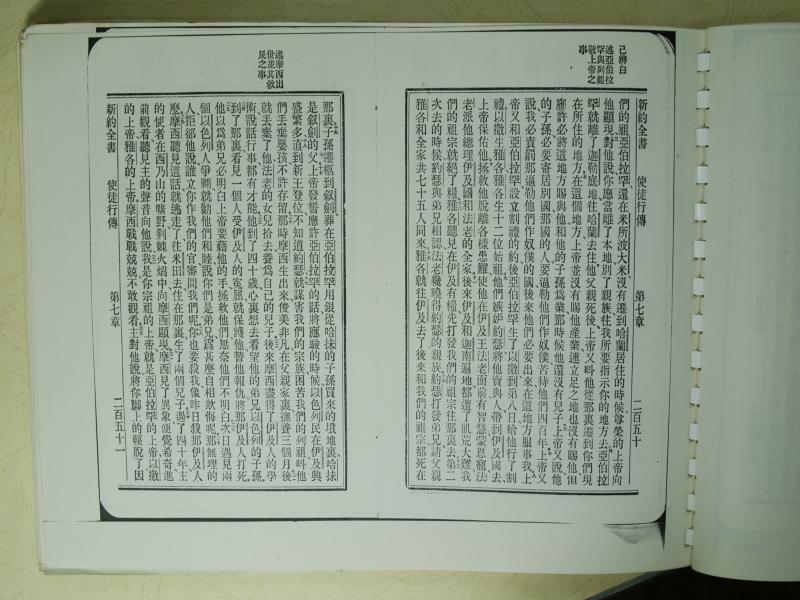 己辨白
述亞伯拉
罕與列祖
敬上帝之
事
新約全書　使徒行傳　第七章　二百五十
們的祖亞伯拉罕還在米所波大米沒有遷到哈蘭居住的時候尊榮的上帝向
他顯現對他說你應當離了本地別了親族往我所要指示你的地方去亞伯拉
罕就離了迦勒底地往哈蘭去住他父親死後上帝又叫他從那裏遷到你們現
在所住的地方在這個地方上帝並沒有賜他產業連立足之地也沒有賜他但
應許必將這地方賜與他和他的子孫爲業那時候他還沒有兒子上帝又說他
的子孫必要寄居別國那國的人要逼勒他們作奴僕苦待他們四百年上帝又
說我必責罰那逼勒他們作奴僕的國後來他們必要出來在這地方服事我上
帝又和亞伯拉罕設立割禮的約後亞伯拉罕生了以撒到第八日給他行了割
禮以撒生雅各雅各生十二位始祖他們嫉妒約瑟將他賣與人帶到伊及國去
上帝保佑他拯救他脫離各樣患難使他在伊及王法老面前有智慧蒙恩寵法
老派他總理伊及國和法老的全家後來伊及和迦南遍地都遭了飢荒大難我
們的祖宗就絕了糧雅各聽見在伊及有糧先打發我們的祖宗往那裏去第二
次去的時候約瑟與弟兄相認法老纔曉得約瑟的親族約瑟打發弟兄請父親
雅各和全家共七十五人同來雅各就往伊及去了後來和我們的祖宗都死在
述摩西出
世並其救
民之事
那裏子孫遷柩到叙劍葬在亞伯拉罕用銀從哈抹的子孫買來的墳地裏哈抹
是叙劍的父上帝發誓應許亞伯拉罕的話將應驗的時候以色列民在伊及興
盛繁多直到新王登位不知道約瑟就謀害我們的宗族困苦我們的列祖叫他
們丟棄嬰孩不許存留那時摩西生出來俊美非凡在父親家裏撫養三個月後
就丟棄了他法老的女兒拾去養爲自己的兒子後來摩西盡得了伊及人的學
術說話行事都有才能他到了四十歲心裏想去看望他的弟兄以色列的子孫
到了那裏看見一個人受伊及人的寃屈就保護他替他報仇將那伊及人打死
他以爲弟兄必明白上帝要藉他的手拯救他們無奈他們不明白次日遇見兩
個以色列人爭鬭就勸他們和睦說你們是弟兄爲甚麼自相欺侮呢那無理的
人拒卻他說誰立你作我們的官審問我們呢你也要殺我像昨日殺那伊及人
麼摩西聽見這話就逃走了往米田去住在那裏生了兩個兒子過了四十年主
的使者在西乃山的曠野荆棘火焰中向摩西顯現摩西見了異象便覺希奇進
前觀看聽見主的聲音向他說我是你宗祖的上帝就是亞伯拉罕的上帝以撒
的上帝雅各的上帝摩西戰戰兢兢不敢觀看主對他說將你腳上的鞋脫了因
新約全書　使徒行傳　第七章　二百五十一